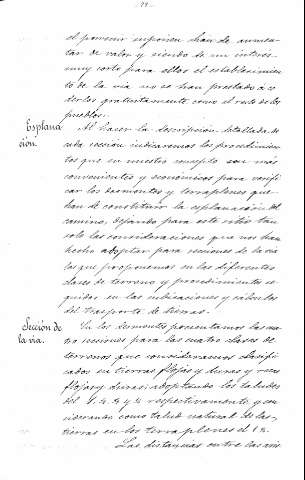 el porvenir supieran han de aumen-
tar de valor y siendo de un interés
muy corto para ellos el establecimien
to de la via no se han prestado a ce
derlos gratuitamente como el resto de los
pueblos.
Esplana
ción.
Al hacer la descripción detallada de
cada sección indicaremos los procedimien
tos que en nuestro concepto son más
convenientes y económicos para verifi
car los desmontes y terraplenes que
han de constituir la esplanación del
camino, dejando para este sitio tan
solo las consideraciones que nos han
hecho adoptar para secciones de la via
las que proponemos en las diferentes
clases de terreno y procedimientos se
guidos en las cubicaciones y calculos
del trasporte de tierras.
Sección de
la via.
En los desmontes presentamos las cua
tro secciones para las cuatro clases de
terrenos que consideramos clasifi
cados en tierras flojas y duras y rocas
flojas y duras adoptando los taludes
del 1. 4. y 8 respectivamente y con
siderando como talud natural de las
tierras en los terraplenes el
Las distancias entre las aris